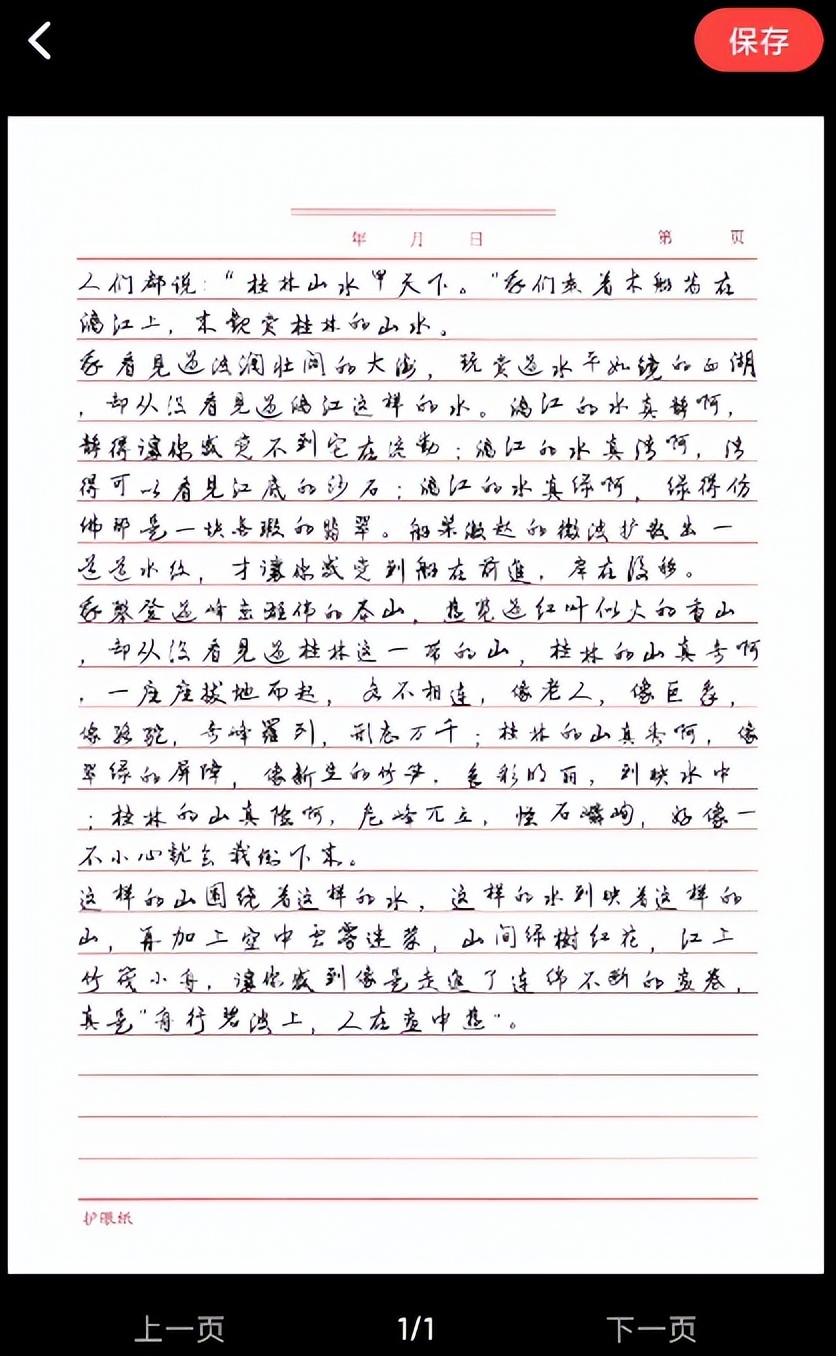 保存
年 月 日 第 页
人们都说："桂林山水甲天下。"我们乘着木船荡在
漓江上，来观赏桂林的山水。
我看見過波澜壮阔的大海，玩赏過水平如镜的西湖
，却从没看見過漓江这样的水。漓江的水真静啊，
静得讓你感觉不到它在流動；漓江的水真清啊，清
得可以看見江底的沙石；漓江的水真绿啊，绿得仿
佛那是一块無瑕的翡翠。船桨激起的微波扩散出一
道道水纹，才讓你感觉到船在前進，岸在後移。
我攀登過峰峦雄伟的泰山，遊览過红叶似火的香山
，却从没看見過桂林这一带的山，桂林的山真奇啊
，一座座拔地而起，各不相连，像老人，像巨象，
像骆驼，奇峰羅列，形态万千；桂林的山真秀啊，像
翠绿的屏障，像新生的竹笋，色彩明丽，倒映水中
；桂林的山真险啊，危峰兀立，怪石嶙峋，好像一
不小心就会栽倒下来。
这样的山围绕着这样的水，这样的水倒映着这样的
山，再加上空中雲雾迷蒙，山间绿樹红花，江上
竹筏小舟，讓你感到像是走進了连绵不断的畫卷，
真是"舟行碧波上，人在畫中遊"。
护眼纸
上一页 1/1 下一页